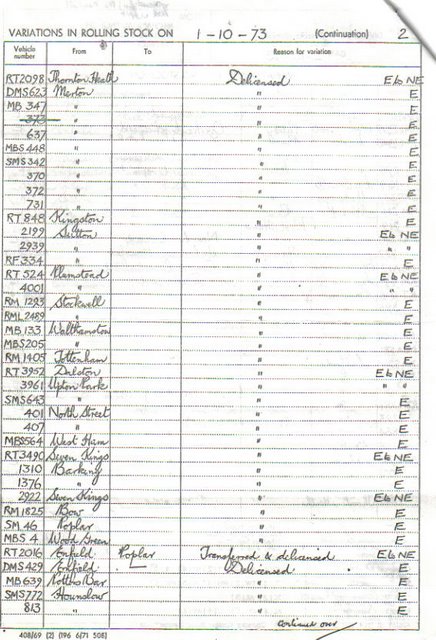 VARIATIONS IN ROLLING STOCK ON 1-10-73 (Continuation) 2
Vehicle number From To Reason for variation
RT2098 Thornton Heath Delicensed Eb NE
DMS623 Merton " E
MB 347 " " E
373 " " E
637 " " E
MBS448 " " E
SMS342 " " E
370 " " E
372 " " E
731 " " E
RT 848 Kingston " E
2199 Sutton " Eb NE
2939 " " " "
RF 334 " " E
RT 524 Plumstead " Eb NE
4001 " " " "
RM 1293 Stockwell " E
RML 2489 " " E
MB 133 Walthamstow " E
MBS205 " " E
RM 1405 Tottenham " E
RT 3952 Dalston " Eb NE
3961 Upton Park " " "
SMS643 " " E
401 North Street " E
407 " " E
MBS564 West Ham " E
RT3490 Seven Kings " Eb NE
1310 Barking " E
1376 " " E
2922 Seven Kings " Eb NE
RM 1825 Bow " E
SM 46 Poplar " E
MBS 4 Wood Green " E
RT2016 Enfield Poplar Transferred & delicensed Eb NE
DMS429 Enfield Delicensed E
MB639 Potters Bar " E
SMS772 Hounslow " E
813 " " E
continued over
408/69 (2) (196 6/71 50E)